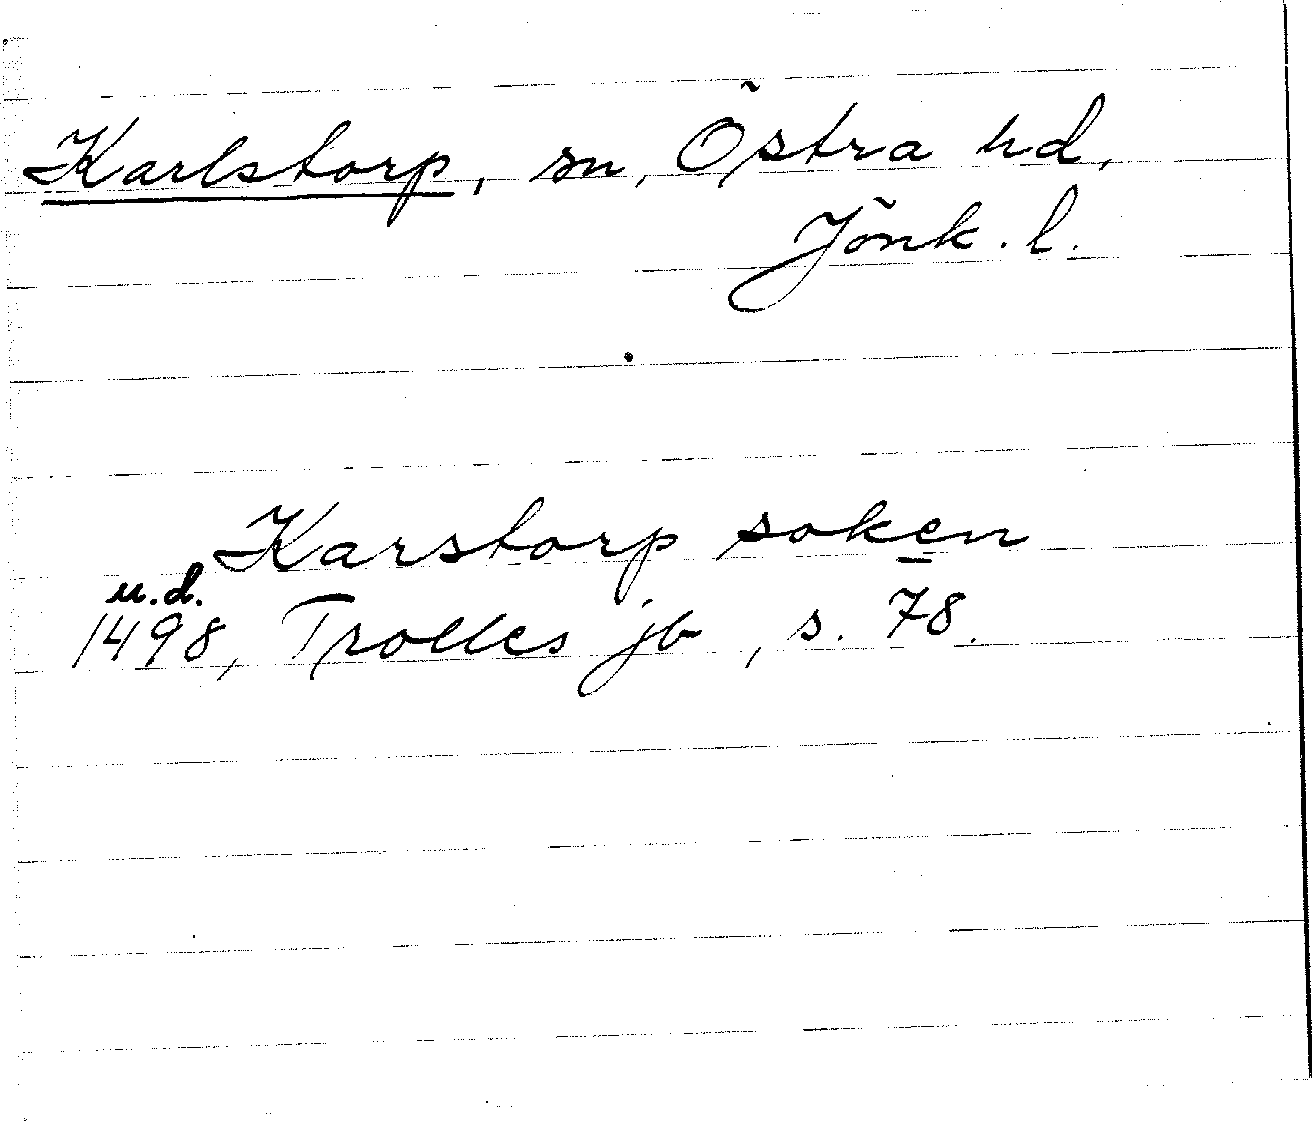 Karlstorp, sn, Östra hd,
Jönk. l.
Karstorp soken
u.d.
1498, Trolles jb, s. 78.